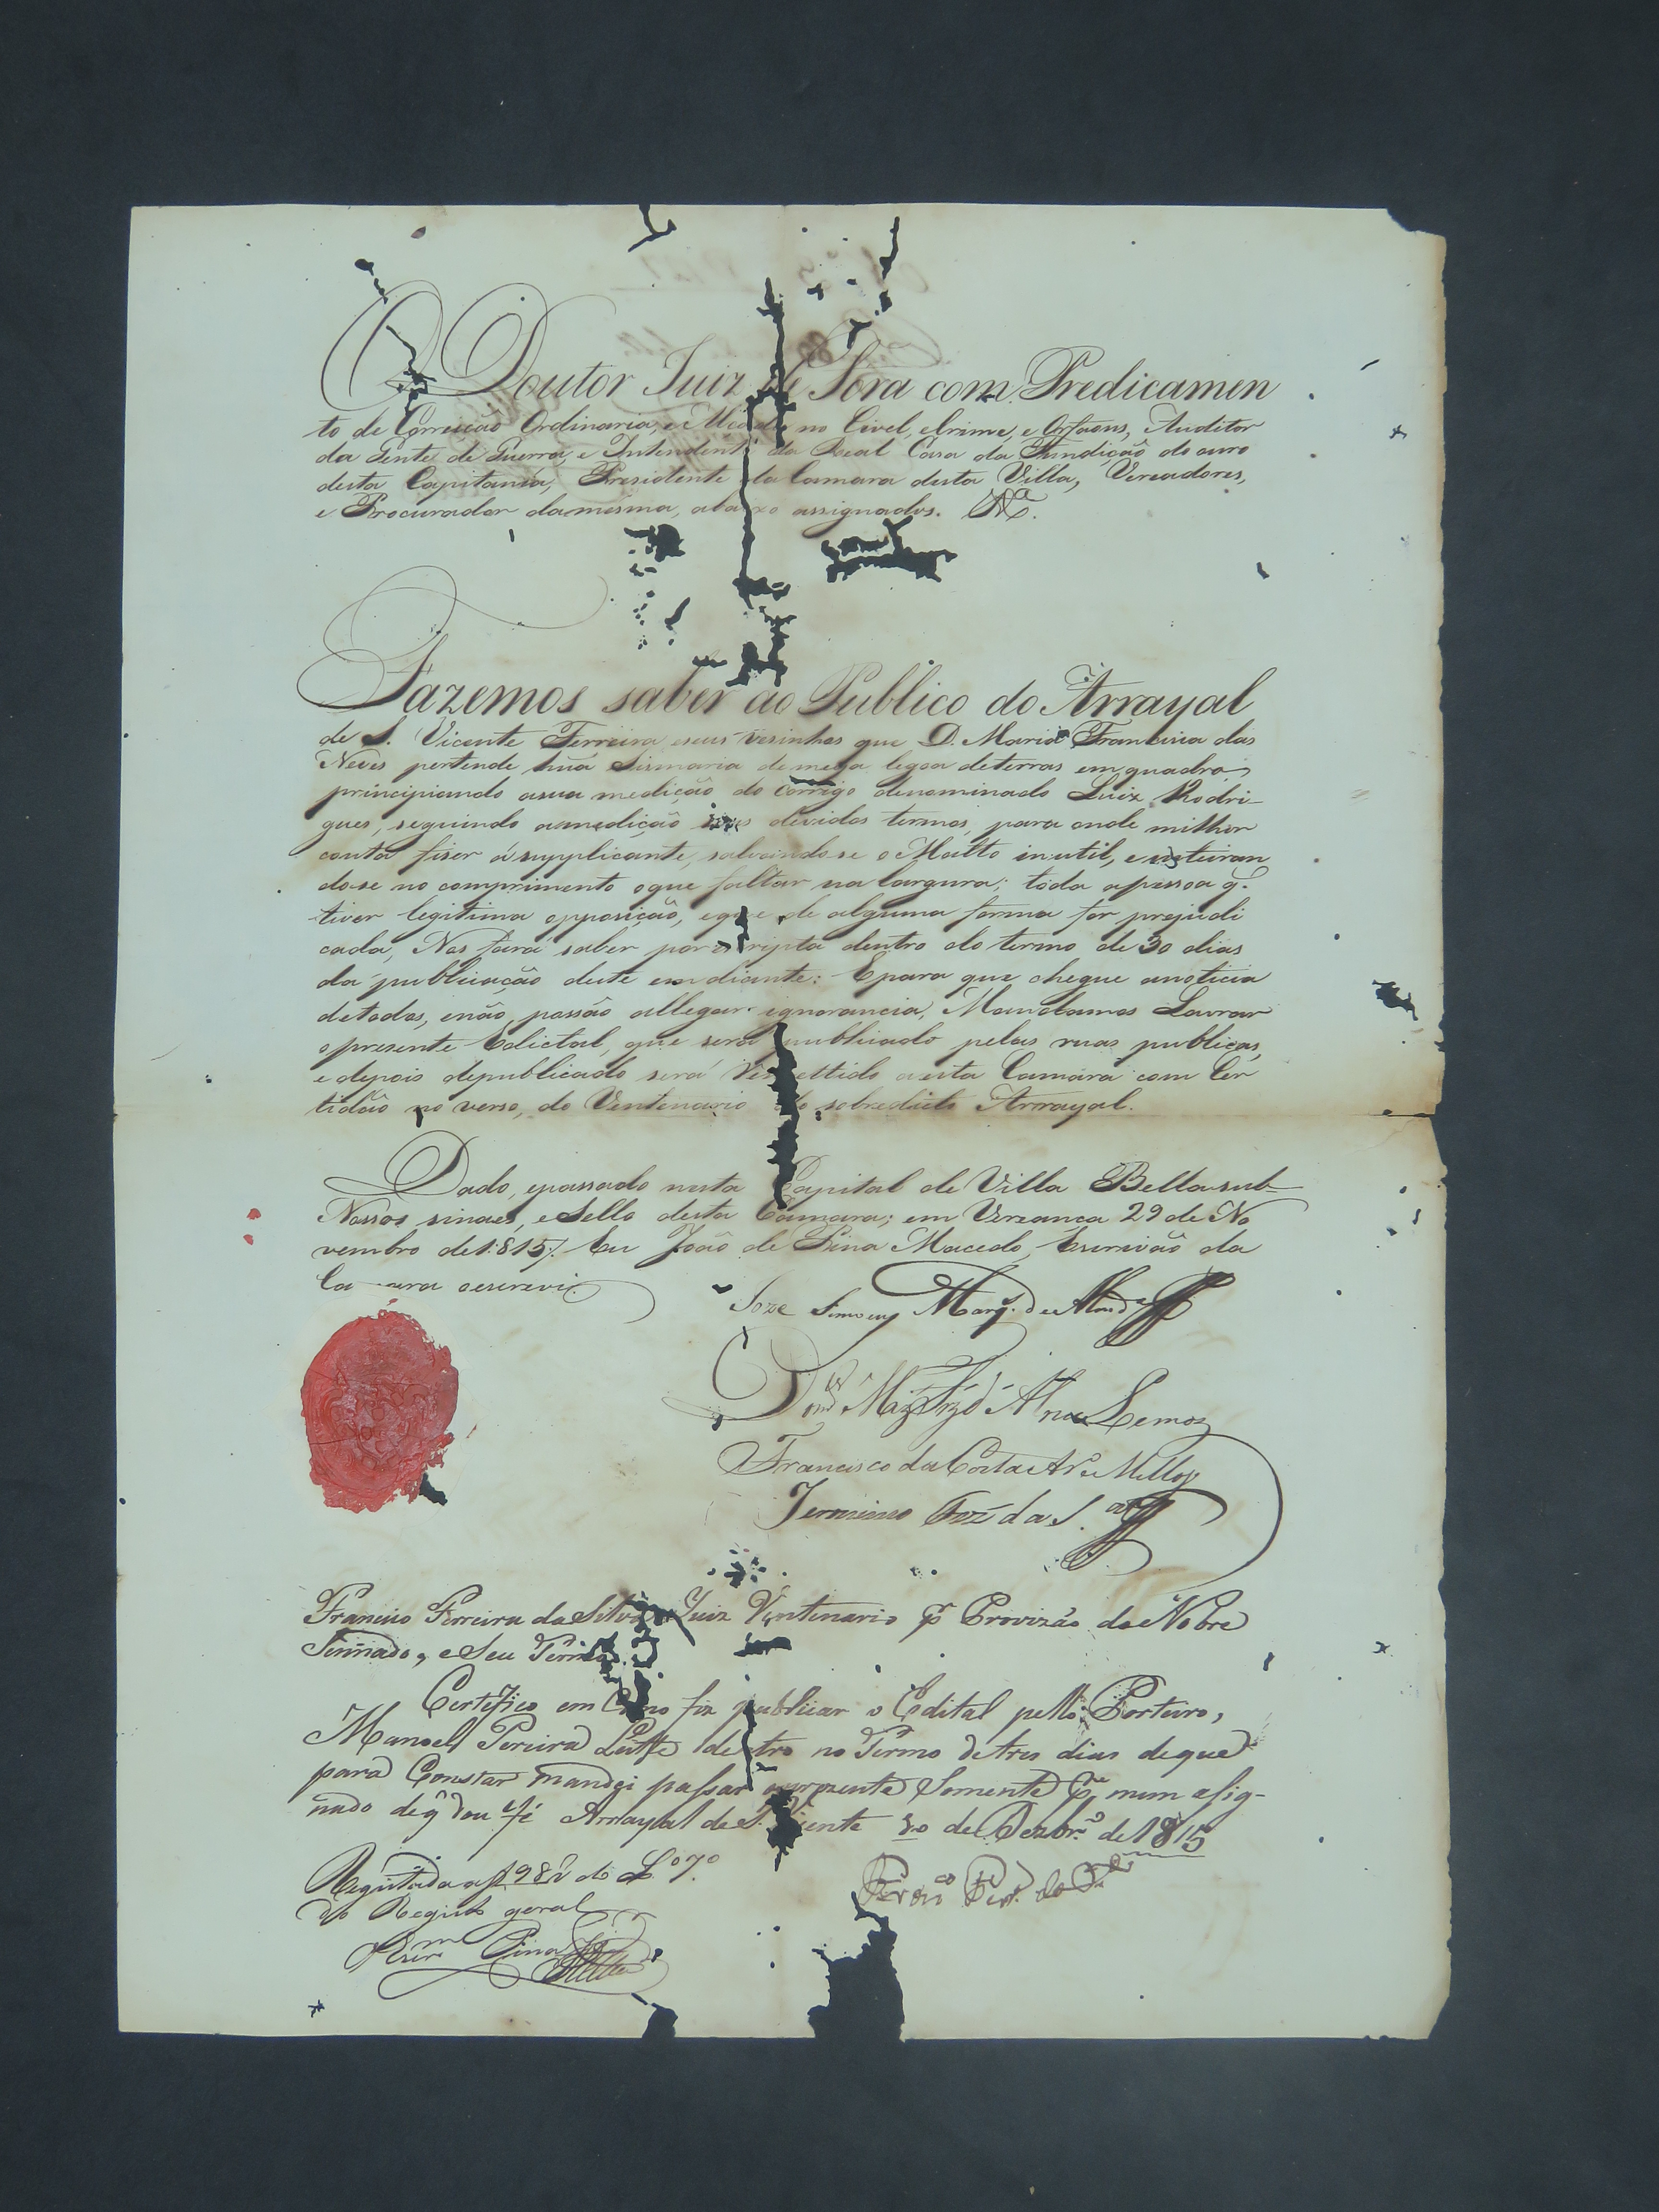 O Doutor Juiz de Fora com Predicamen
to de Correição Ordinaria, e no Civel, e Crime, e Orfaons, Auditor
da Gente de Guerra, e Intendente da Real Casa da Fundição do ouro
desta Capitania, Presidente da Camara desta Villa, Vereadores,
e Procurador da mesma, abaixo assignados. &ª.
Fazemos saber ao Publico do Arrayal
de S. Vicente Ferreira eseus vesinhos que D. Maria Francisca das
Neves pertende huã Sismaria demeya legoa deterras em quadro,
principiando asua medição do corrigo denominado Luiz Rodri-
gues, seguindo amedição devidos termos, para onde milhor
conta fizer ásupplicante, salvandose o Matto inutil, e inteiran
dose no comprimento oque faltar na largura; toda apessoa q.
tiver legitima opposição, eque de alguma forma for prejudi
cada, Nos fará saber por escripta dentro do termo de 30 dias
da publicação deste em diante: Epara que chegue anoticia
detodos, enão possão allegar ignorancia, Mandamos Lavrar
opresente Edictal, que será publicado pelas ruas publicas,
e depois depublicado será remettido aesta Camara com Cer
tidão no verso, do Ventenario do sobredicto Arrayal.
Dado, epassado nesta Capital de Villa Bella sub
Nossos sinaes, e Sello desta Camara; em Vreança 29 de No
vembro de 1815. Eu João de Pina Macedo, Escrivão da
Camara oescrevi.
Joze Simoens Marq.
Lemos
Francisco da Costa e Mello
Jeronimo Joze da S.ª
Francisco Ferreira da Silva Juiz Ventenario p Provizão do Nobre
Sennado, e Seu Termo
Certefico em Como fiz publicar o Edital pello Porteiro,
Manoel Pereira Leitte dentro no Termo de tres dias deque
para Constar mandei passar oprezente Somente p mim asig-
nado deq̃ dou fé Arrayal de S. Vicente 30 de Dezbr.º de 1815
Fran.co Ferr.ª da S.ª
Registada af 98 do L.º 7.º
do Registo geral
Pina